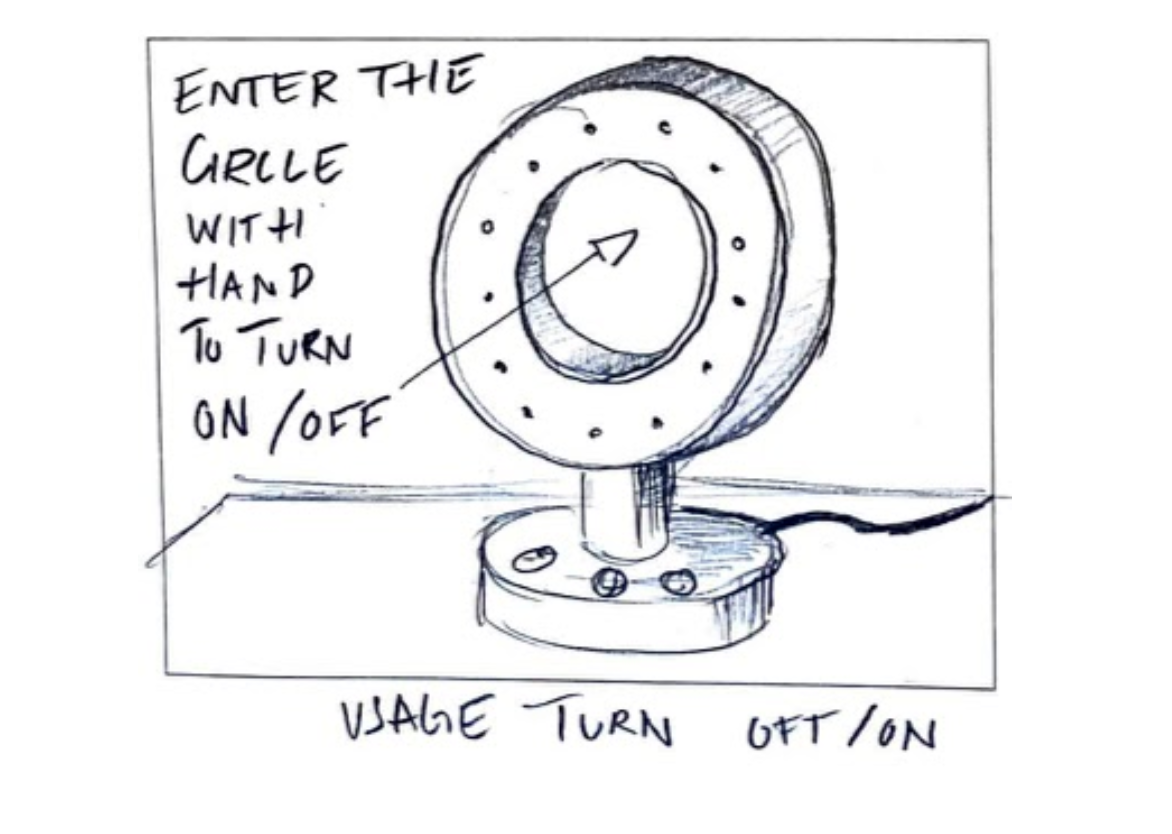 ENTER THE
CIRCLE
WITH
HAND
TO TURN
ON /OFF
USAGE TURN OFF/ON